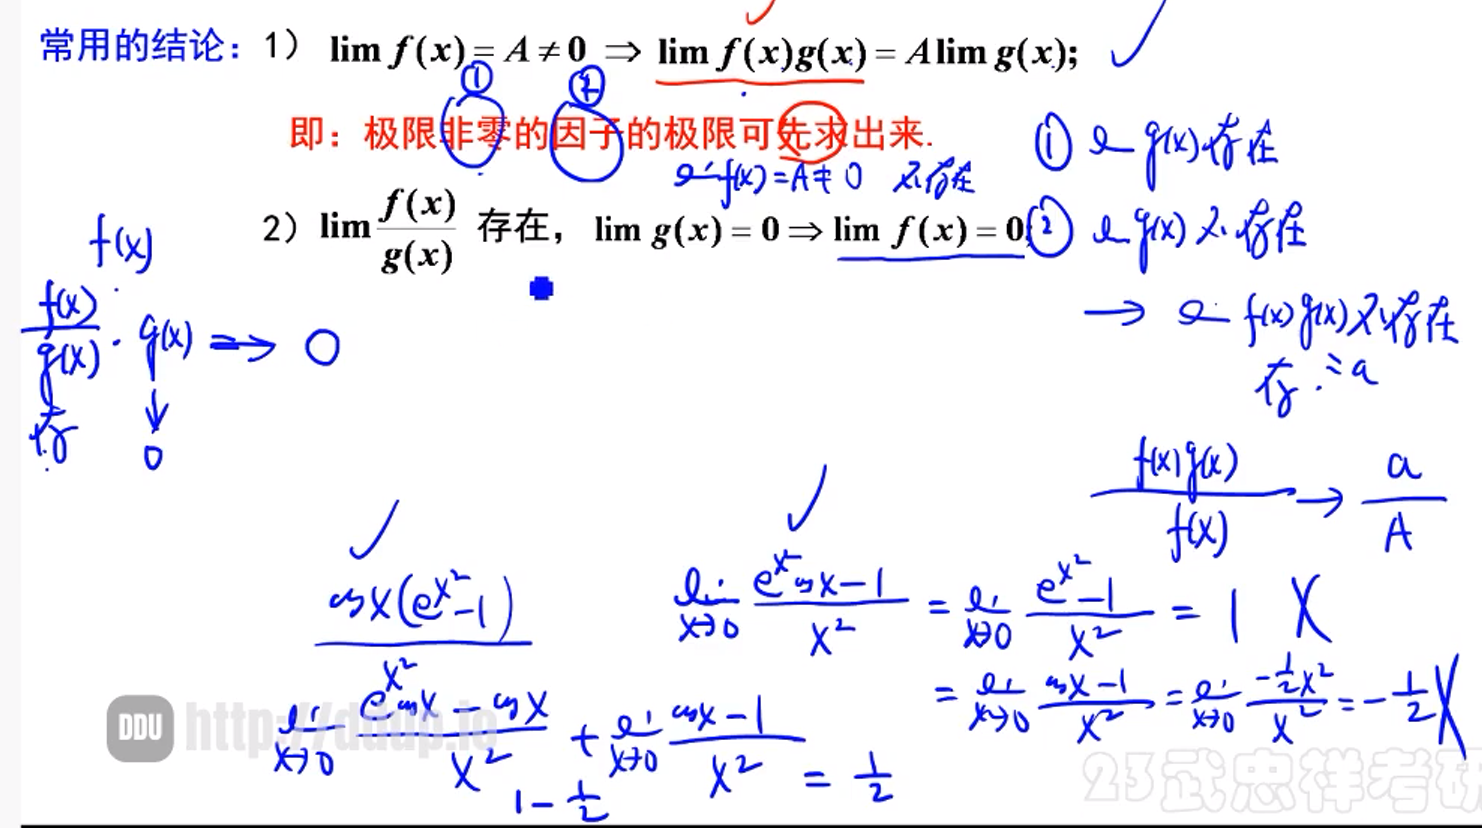 常用的结论：1） lim f(x) = A ≠ 0 ⇒ lim f(x)g(x) = A lim g(x);
① ②
即：极限非零的因子的极限可先求出来.
① lim g(x)存在
lim f(x) = A ≠ 0 不存在
2） lim f(x)/g(x) 存在， lim g(x) = 0 ⇒ lim f(x) = 0;
② lim g(x) 不存在
f(x)
→ lim f(x)g(x) 不存在
存 = a
f(x)/g(x) · g(x) ⇒ 0
存 ↓
0
f(x)g(x)/f(x) → a/A
cosx(e^{x^2}-1)/x^2
lim_{x→0} (e^{x^2}cosx-1)/x^2 = lim_{x→0} (e^{x^2}-1)/x^2 = 1 X
= lim_{x→0} (cosx-1)/x^2 = lim_{x→0} (-1/2 x^2)/x^2 = -1/2 X
lim_{x→0} (e^{x^2}cosx - cosx)/x^2 + lim_{x→0} (cosx-1)/x^2 = 1/2
1 - 1/2
DDU http://ddup.io
23武忠祥考研